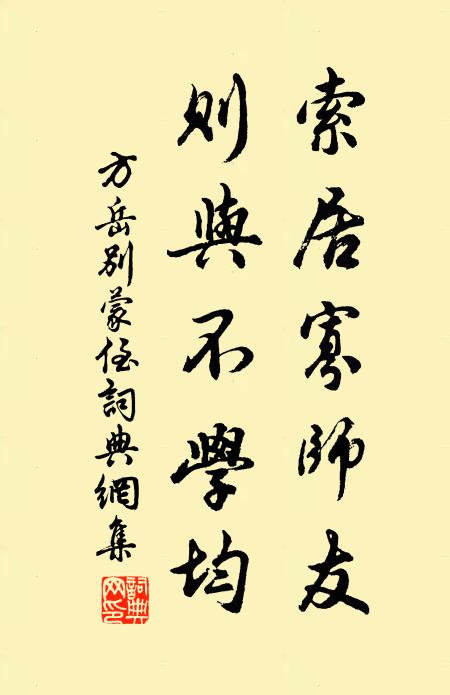 索居寡師友
則與不學均
方岳別蒙姪詞典網集
詞典網印